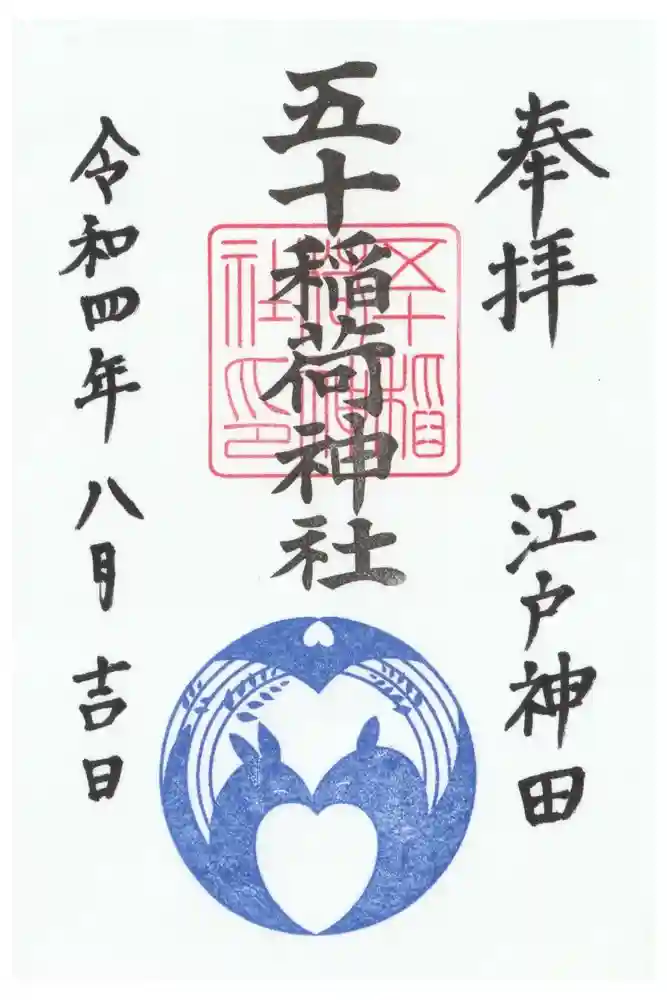 奉拝
江戸神田
五十稲荷神社
五十稲
荷神
社之印
令和四年八月吉日